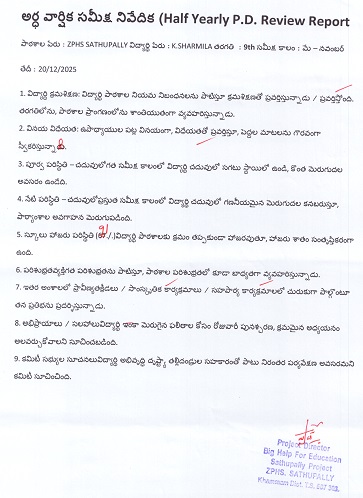 అర్ధ వార్షిక సమీక్ష నివేదిక (Half Yearly P.D. Review Report
పాఠశాల పేరు : ZPHS SATHUPALLY విద్యార్థి పేరు : K.SHARMILA తరగతి : 9th సమీక్ష కాలం : మే – నవంబర్
తేదీ : 20/12/2025
1. విద్యార్థి క్రమశిక్షణ: విద్యార్థి పాఠశాల నియమ నిబంధనలను పాటిస్తూ క్రమశిక్షణతో ప్రవర్తిస్తున్నాడు / ప్రవర్తిస్తోంది.
తరగతిలోను, పాఠశాల ప్రాంగణంలోను శాంతియుతంగా వ్యవహరిస్తున్నాడు.
2. వినయ విధేయత: ఉపాధ్యాయుల పట్ల వినయంగా, విధేయతతో ప్రవర్తిస్తూ, పెద్దల మాటలను గౌరవంగా
స్వీకరిస్తున్నాడు.
3. పూర్వ పరిస్థితి – చదువులోగత సమీక్ష కాలంలో విద్యార్థి చదువులో సగటు స్థాయిలో ఉండి, కొంత మెరుగుదల
అవసరం ఉండేది.
4. నేటి పరిస్థితి – చదువులోప్రస్తుత సమీక్ష కాలంలో విద్యార్థి చదువులో గణనీయమైన మెరుగుదల కనబరుస్తూ,
పాఠ్యాంశాల అవగాహన మెరుగుపడింది.
5. స్కూలు హాజరు పరిస్థితి విద్యార్థి పాఠశాలకు క్రమం తప్పకుండా హాజరవుతూ, హాజరు శాతం సంతృప్తికరంగా
ఉంది.
6. పరిశుభ్రతవ్యక్తిగత పరిశుభ్రతను పాటిస్తూ, పాఠశాల పరిశుభ్రతలో కూడా బాధ్యతగా వ్యవహరిస్తున్నాడు.
7. ఇతర అంశాల్లో ప్రావీణ్యతక్రీడలు / సాంస్కృతిక కార్యక్రమాలు / సహపాఠ్య కార్యక్రమాలలో చురుకుగా పాల్గొంటూ
తన ప్రతిభను ప్రదర్శిస్తున్నాడు.
8. అభిప్రాయాలు / సలహాలువిద్యార్థి ఇంకా మెరుగైన ఫలితాల కోసం రోజువారీ పునశ్చరణ, క్రమమైన అధ్యయనం
అలవర్చుకోవాలని సూచించబడింది.
9. కమిటీ సభ్యుల సూచనలువిద్యార్థి అభివృద్ధి దృష్ట్యా తల్లిదండ్రుల సహకారంతో పాటు నిరంతర పర్యవేక్షణ అవసరమని
కమిటీ సూచించింది.
Project Director
Big Help For Education
Sathupally Project
ZPHS. SATHUPALLY
Khammam Dist. T.S. 507 303.